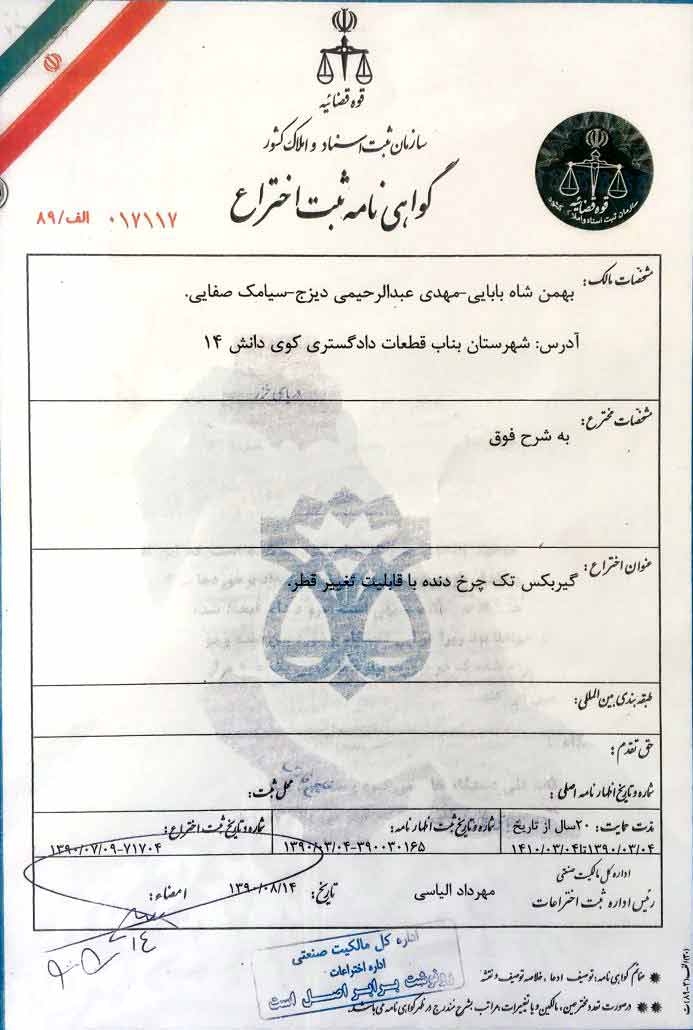 قوه قضائیه
سازمان ثبت اسناد و املاک کشور
گواهی نامه ثبت اختراع
قوه قضائیه
سازمان ثبت اسناد و املاک کشور
۰۱۷۱۱۷ الف/۸۹
مشخصات مالک:
بهمن شاه بابایی-مهدی عبدالرحیمی دیزج-سیامک صفایی.
آدرس: شهرستان بناب قطعات دادگستری کوی دانش ۱۴
دریای خزر
مشخصات مخترع:
به شرح فوق
عنوان اختراع:
گیربکس تک چرخ دنده با قابلیت تغییر قطر.
طبقه بندی بین المللی:
حق تقدم:
شماره و تاریخ اظهارنامه اصلی: محل ثبت:
مدت حمایت: ۲۰سال از تاریخ شماره و تاریخ ثبت اظهارنامه: شماره و تاریخ ثبت اختراع:
۱۳۹۰/۰۳/۰۴تا۱۴۱۰/۰۳/۰۴ ۱۳۹۰/۰۳/۰۴-۳۹۰۰۳۰۱۶۵ ۱۳۹۰/۰۷/۰۹-۷۱۷۰۴
اداره کل مالکیت صنعتی
رئیس اداره ثبت اختراعات مهرداد الیاسی تاریخ: ۱۳۹۰/۰۸/۱۴ امضاء:
اداره کل مالکیت صنعتی
اداره اختراعات
رونوشت برابر اصل است
** ضمائم گواهی نامه: توصیف، ادعا، خلاصه توصیف و نقشه
** درصورت تعدد مخترعین، مالکین و یا تغییرات، مراتب بشرح مندرج در ظهر گواهی نامه می باشد.